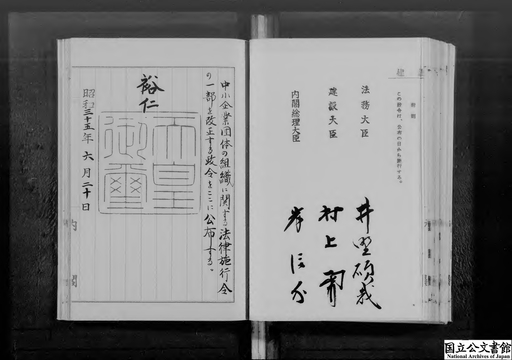 附則
この政令は、公布の日から施行する。
法務大臣 井野碩哉
建設大臣 村上勇
内閣総理大臣 岸信介
中小企業団体の組織に関する法律施行令
の一部を改正する政令をここに公布する。
裕仁
天皇御璽
昭和三十五年六月二十日
内閣
国立公文書館
National Archives of Japan